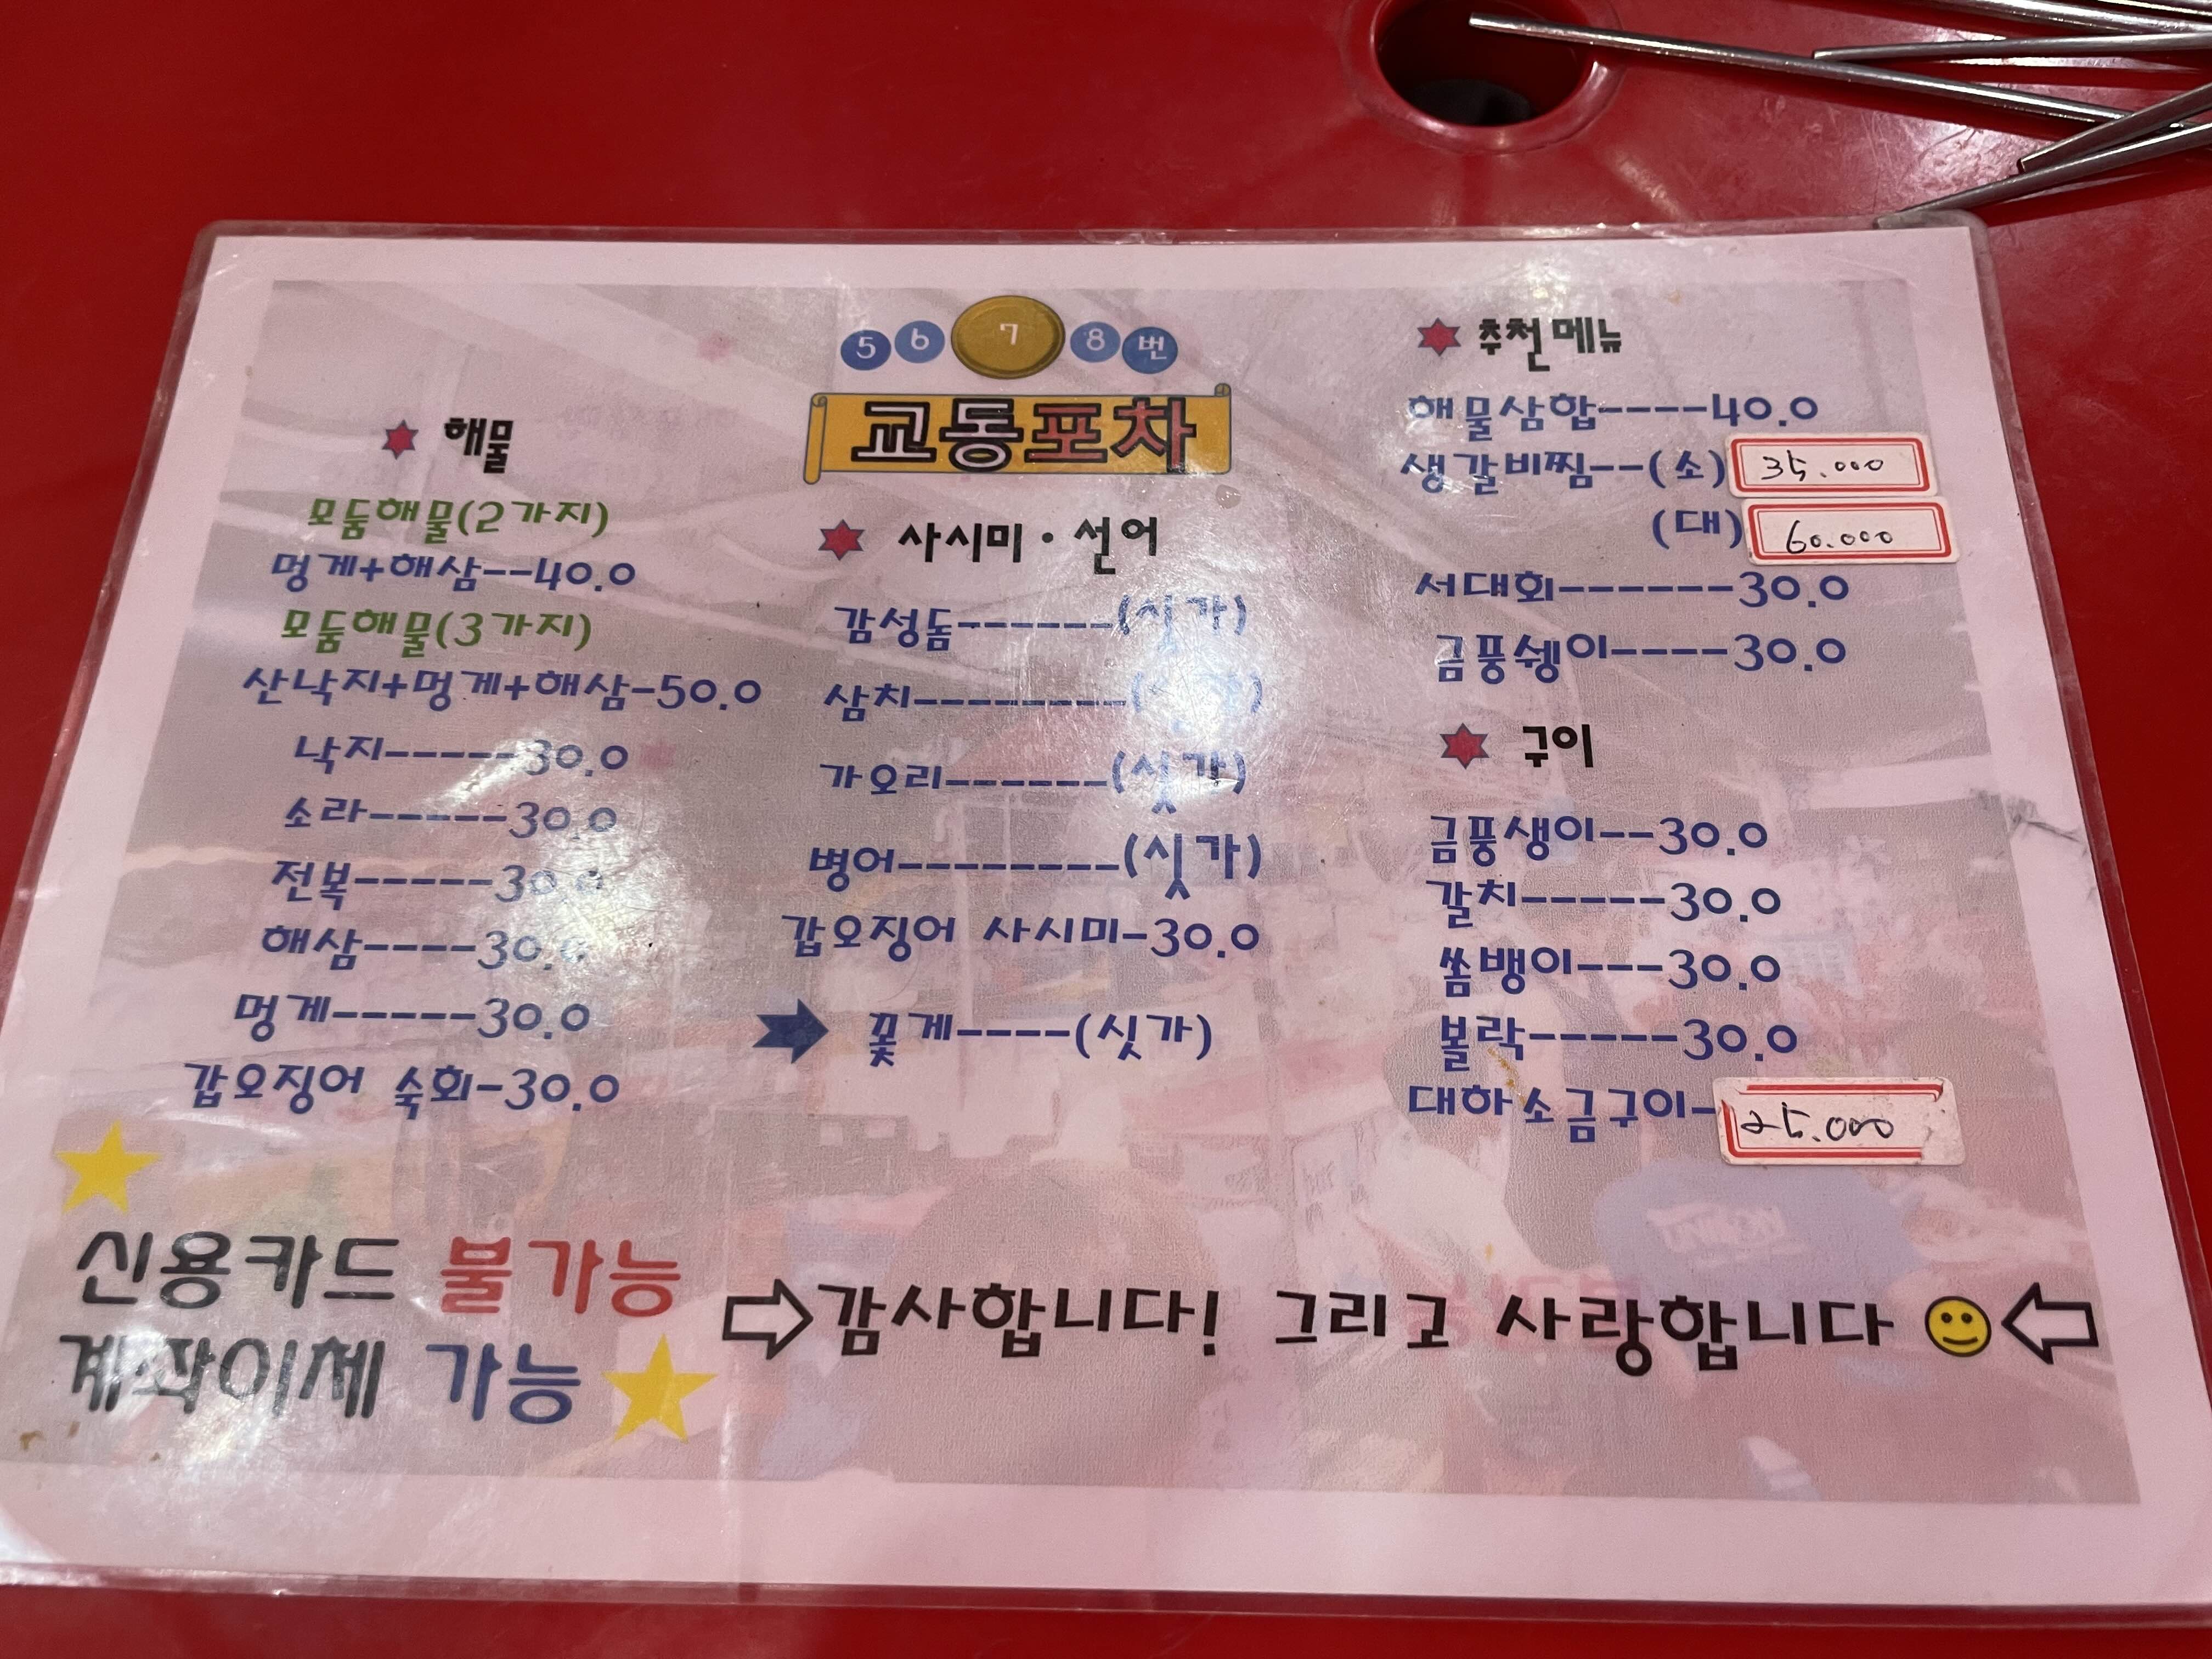 5 6 7 8 번
교동포차
해물
모둠해물(2가지)
멍게+해삼--40.0
모둠해물(3가지)
산낙지+멍게+해삼-50.0
낙지-----30.0
소라-----30.0
전복-----30.0
해삼----30.0
멍게-----30.0
갑오징어 숙회-30.0
사시미·선어
감성돔------(싯가)
삼치--------(싯가)
가오리------(싯가)
병어--------(싯가)
갑오징어 사시미-30.0
꽃게----(싯가)
추천메뉴
해물삼합----40.0
생갈비찜--(소) 35.000
(대) 60.000
서대회------30.0
금풍쉥이----30.0
구이
금풍생이--30.0
갈치-----30.0
쏨뱅이---30.0
볼락-----30.0
대하소금구이- 25.000
신용카드 불가능
계좌이체 가능
감사합니다! 그리고 사랑합니다